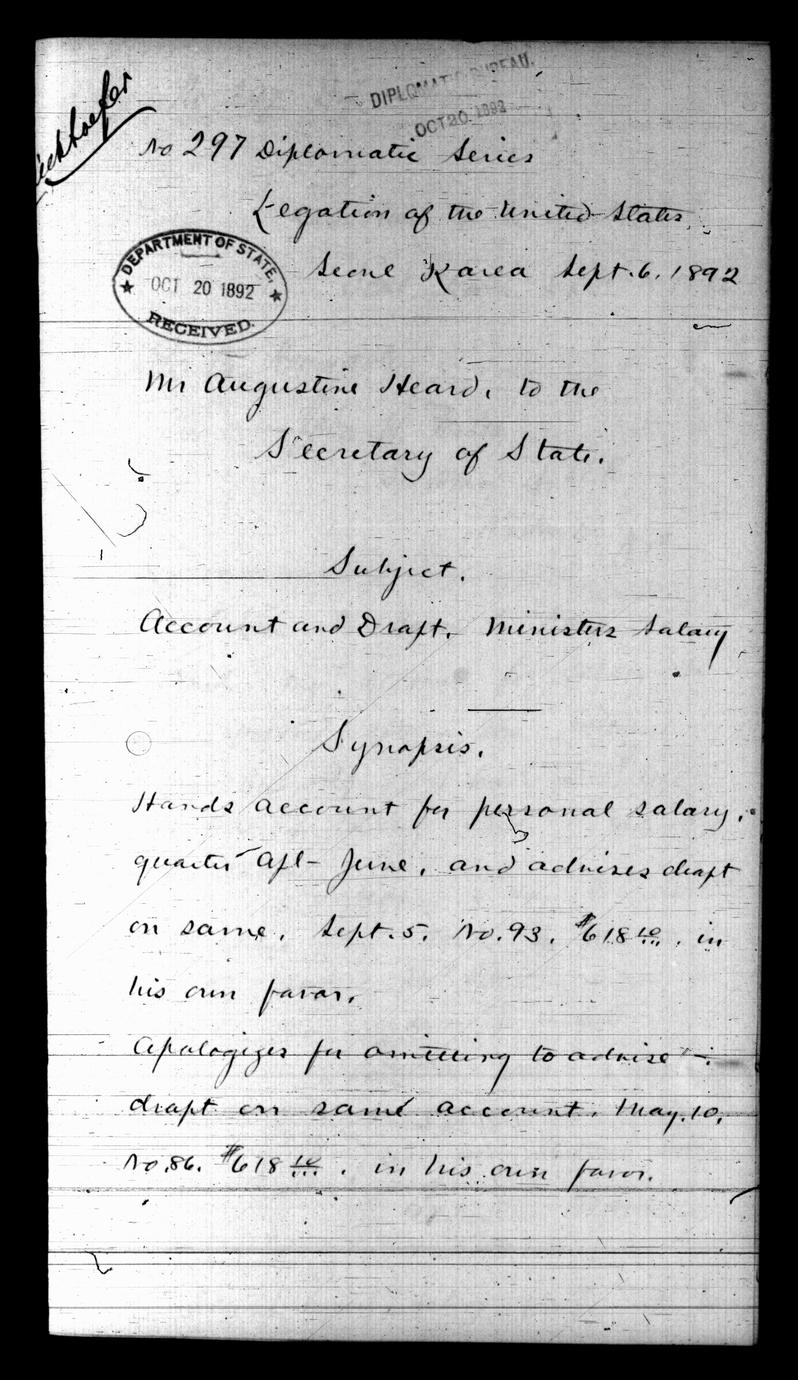 DIPLOMATIC BUREAU.
OCT 20 1892
No 297 Diplomatic Series
Legation of the United States
Seoul Korea Sept. 6. 1892
DEPARTMENT OF STATE,
OCT 20 1892
RECEIVED.
Mr Augustine Heard, to the
Secretary of State.
Subject.
Account and Draft. Ministers Salary
Synopsis.
Hands account for personal salary,
quarter Apl - June, and advises draft
on same, Sept. 5. No. 93. $618 10/.. in
his own favor.
Apologizes for omitting to advise
draft on same account. May. 10.
No. 86. $618 10/.. . in his own favor.